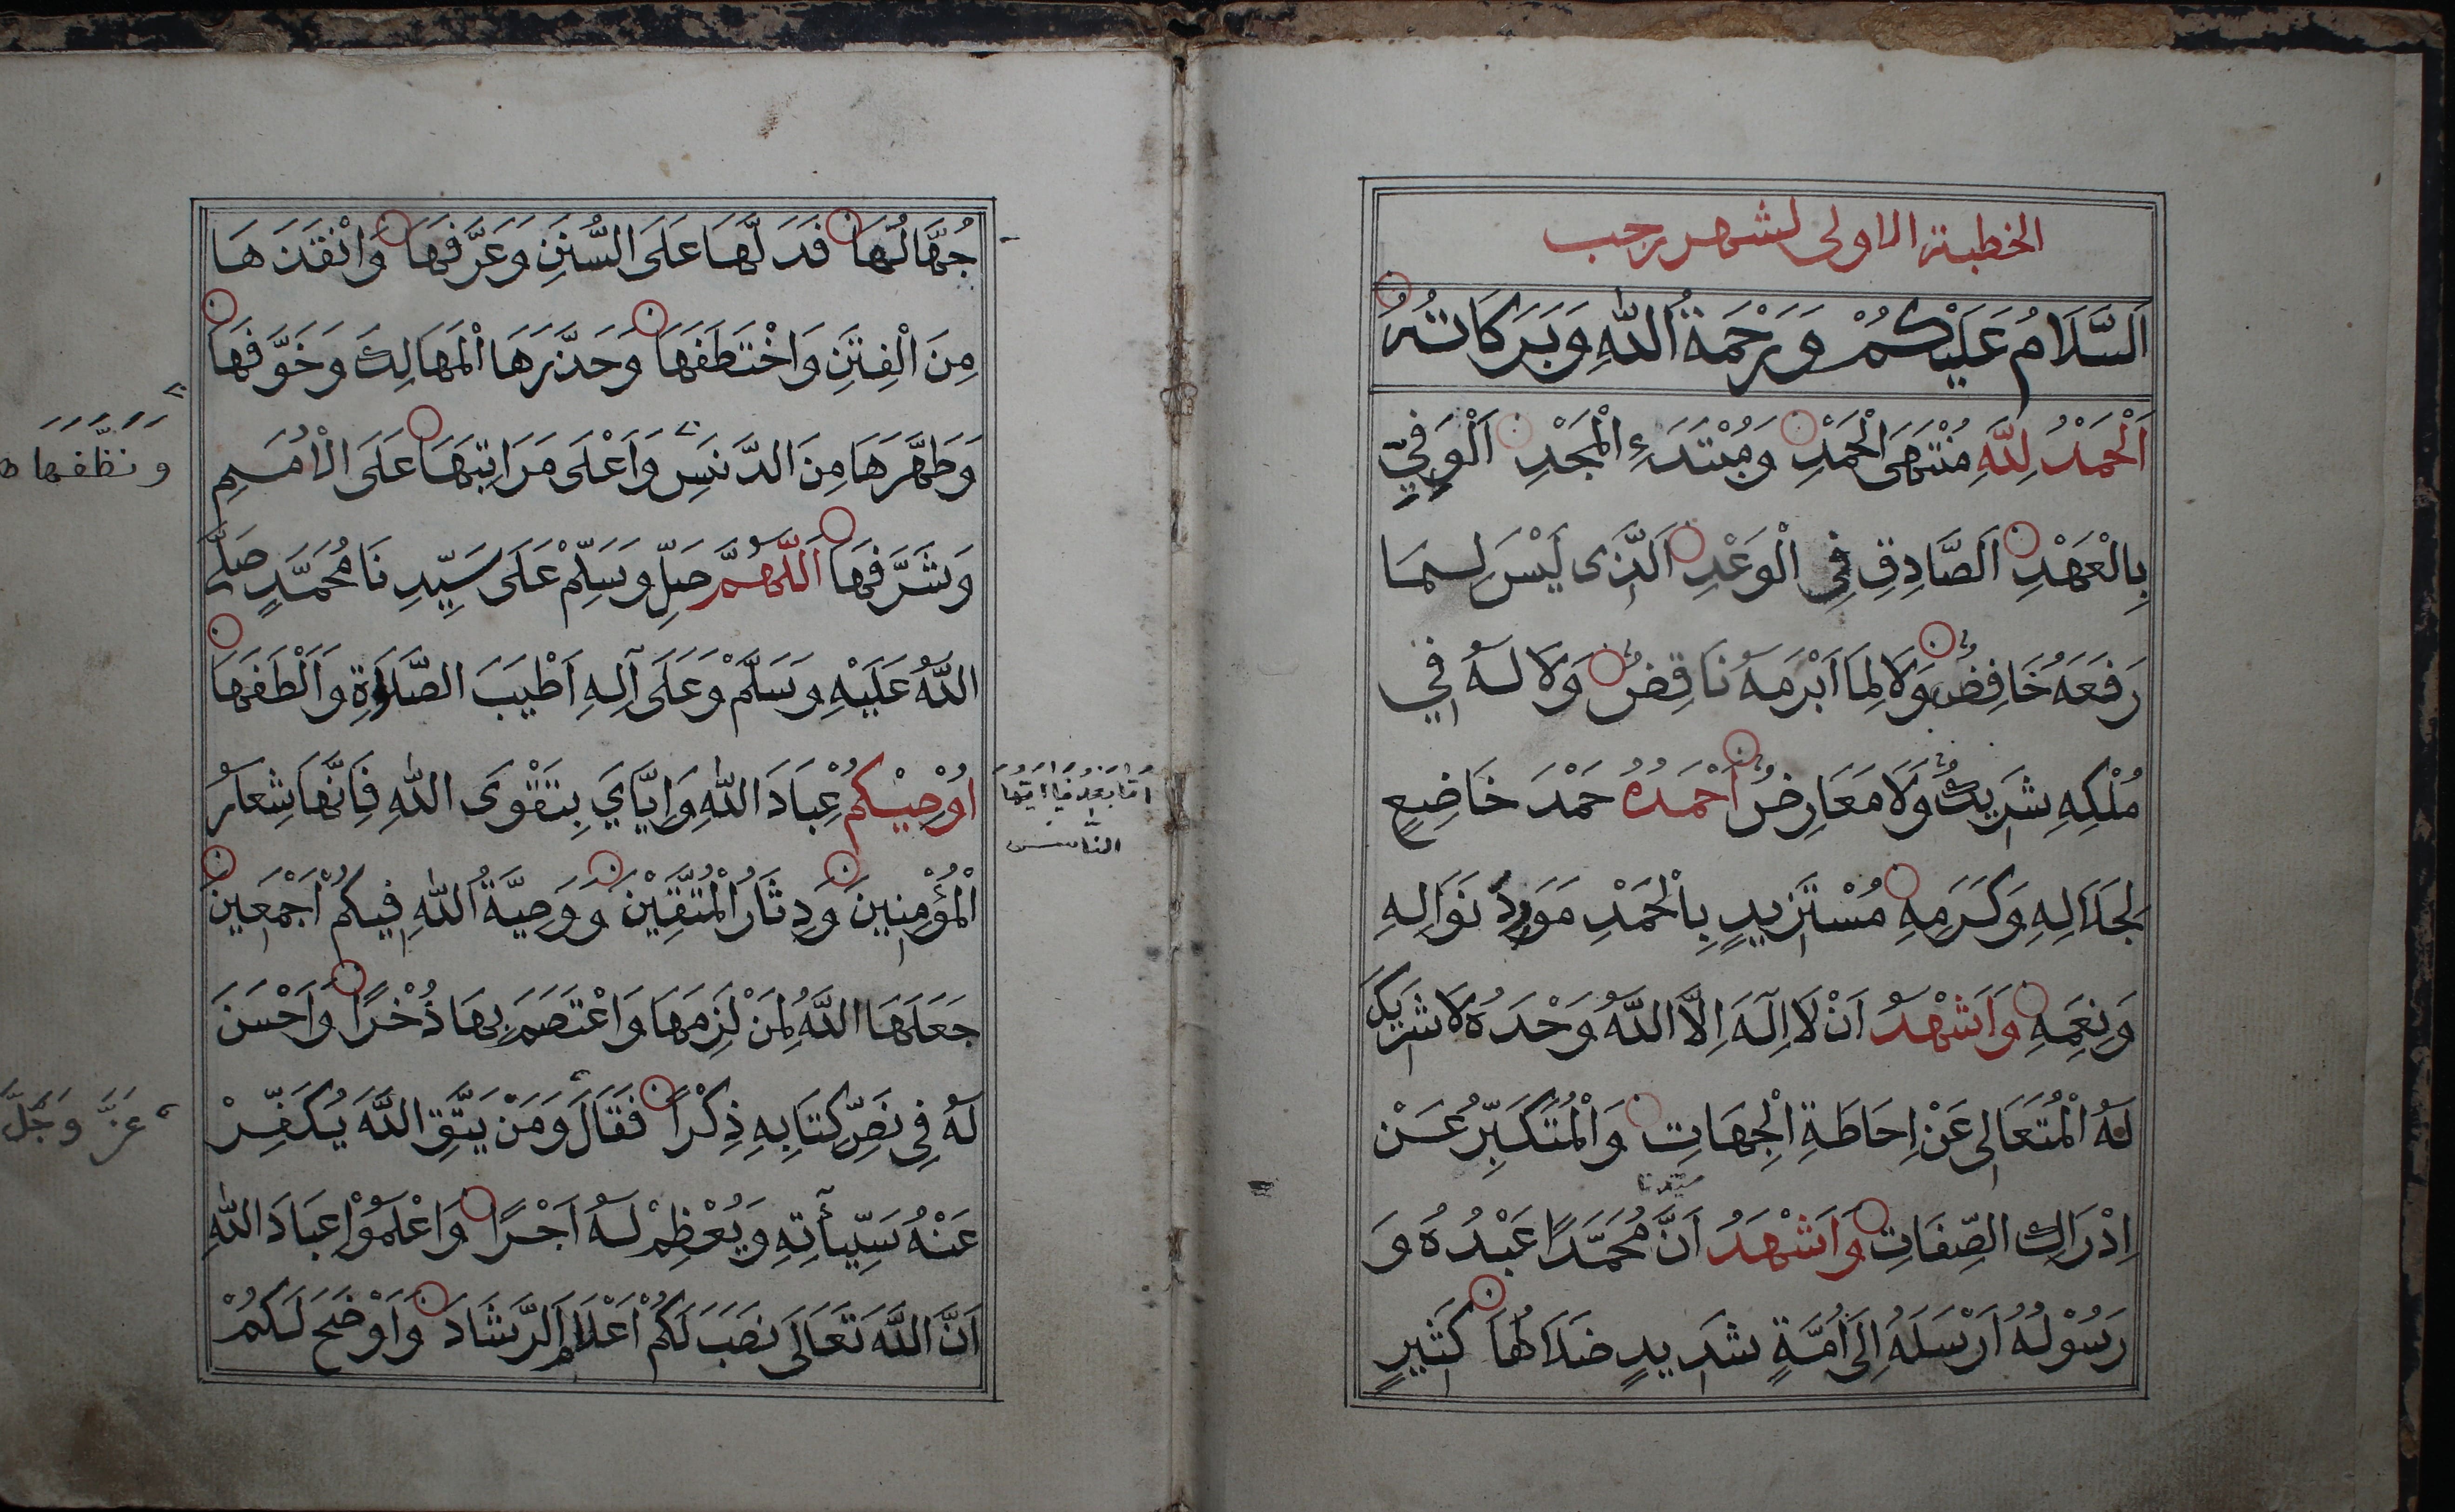 الخطبة الاولى لشهر رجب
اَلسَّلَامُ عَلَيْكُمْ وَرَحْمَةُ اللّٰهِ وَبَرَكَاتُهُ
اَلْحَمْدُ لِلّٰهِ مُنْتَهَى الْحَمْدِ وَمُبْتَدَءِ الْمَجْدِ اَلْوَفِيِّ
بِالْعَهْدِ اَلصَّادِقِ فِي الْوَعْدِ اَلَّذِى لَيْسَ لِمَا
رَفَعَهُ خَافِضٌ وَلَا لِمَا اَبْرَمَهُ نَاقِضٌ وَلَا لَهُ فِي
مُلْكِهِ شَرِيكٌ وَلَا مَعَارِضٌ اَحْمَدُهُ حَمْدَ خَاضِعٍ
لِجَلَالِهِ وَكَرَمِهِ مُسْتَزِيدٍ بِالْحَمْدِ مَوَرِدَ نَوَالِهِ
وَنِعَمِهِ وَاَشْهَدُ اَنْ لَا اِلٰهَ اِلَّا اللّٰهُ وَحْدَهُ لَا شَرِيكَ
لَهُ الْمُتَعَالِى عَنْ اِحَاطَةِ الْجِهَاتِ وَالْمُتَكَبِّرُ عَنْ
سيدنا
اِدْرَاكِ الصِّفَاتِ وَاَشْهَدُ اَنَّ مُحَمَّدًا عَبْدُهُ وَ
رَسُوْلُهُ اَرْسَلَهُ اِلَى اُمَّةٍ شَدِيدٍ ضَلَالُهَا كَثِيرٍ
جُهَّالُهَا فَدَلَّهَا عَلَى السُّنَنِ وَعَرَّفَهَا وَانْقَذَهَا
مِنَ الْفِتَنِ وَاخْتَطَفَهَا وَحَذَّرَهَا الْمَهَالِكَ وَخَوَّفَهَا
وَطَهَّرَهَا مِنَ الدَّنَسِ وَاَعْلَى مَرَاتِبَهَا عَلَى الْاُمَمِ
وَنَظَّفَهَا
وَشَرَّفَهَا اَللّٰهُمَّ صَلِّ وَسَلِّمْ عَلَى سَيِّدِنَا مُحَمَّدٍ صَلَّى
اللّٰهُ عَلَيْهِ وَسَلَّمْ وَعَلَى آلِهِ اَطْيَبَ الصَّلَاةِ وَاَلْطَفَهَا
اُوْصِيْكُمْ عِبَادَ اللّٰهِ وَاِيَّايَ بِتَقْوَى اللّٰهِ فَاِنَّهَا شِعَارُ
اَمَّا بَعْدُ فَيَا اَيُّهَا
النَّاسُ
الْمُؤْمِنِينَ وَدِثَارُ الْمُتَّقِيْنَ وَوَصِيَّةُ اللّٰهِ فِيكُمْ اَجْمَعِينَ
جَعَلَهَا اللّٰهُ لِمَنْ لَزِمَهَا وَاعْتَصَمَ بِهَا ذُخْرًا وَاَحْسَنَ
لَهُ فِى نَصِّ كِتَابِهِ ذِكْرًا فَقَالَ وَمَنْ يَتَّقِ اللّٰهَ يُكَفِّرْ
عَزَّ وَجَلَّ
عَنْهُ سَيِّئَاتِهِ وَيُعْظِمْ لَهُ اَجْرًا وَاعْلَمُوْا عِبَادَ اللّٰهِ
اَنَّ اللّٰهَ تَعَالَى نَصَبَ لَكُمْ اَعْلَامَ الرَّشَادَ وَاَوْضَحَ لَكُمْ